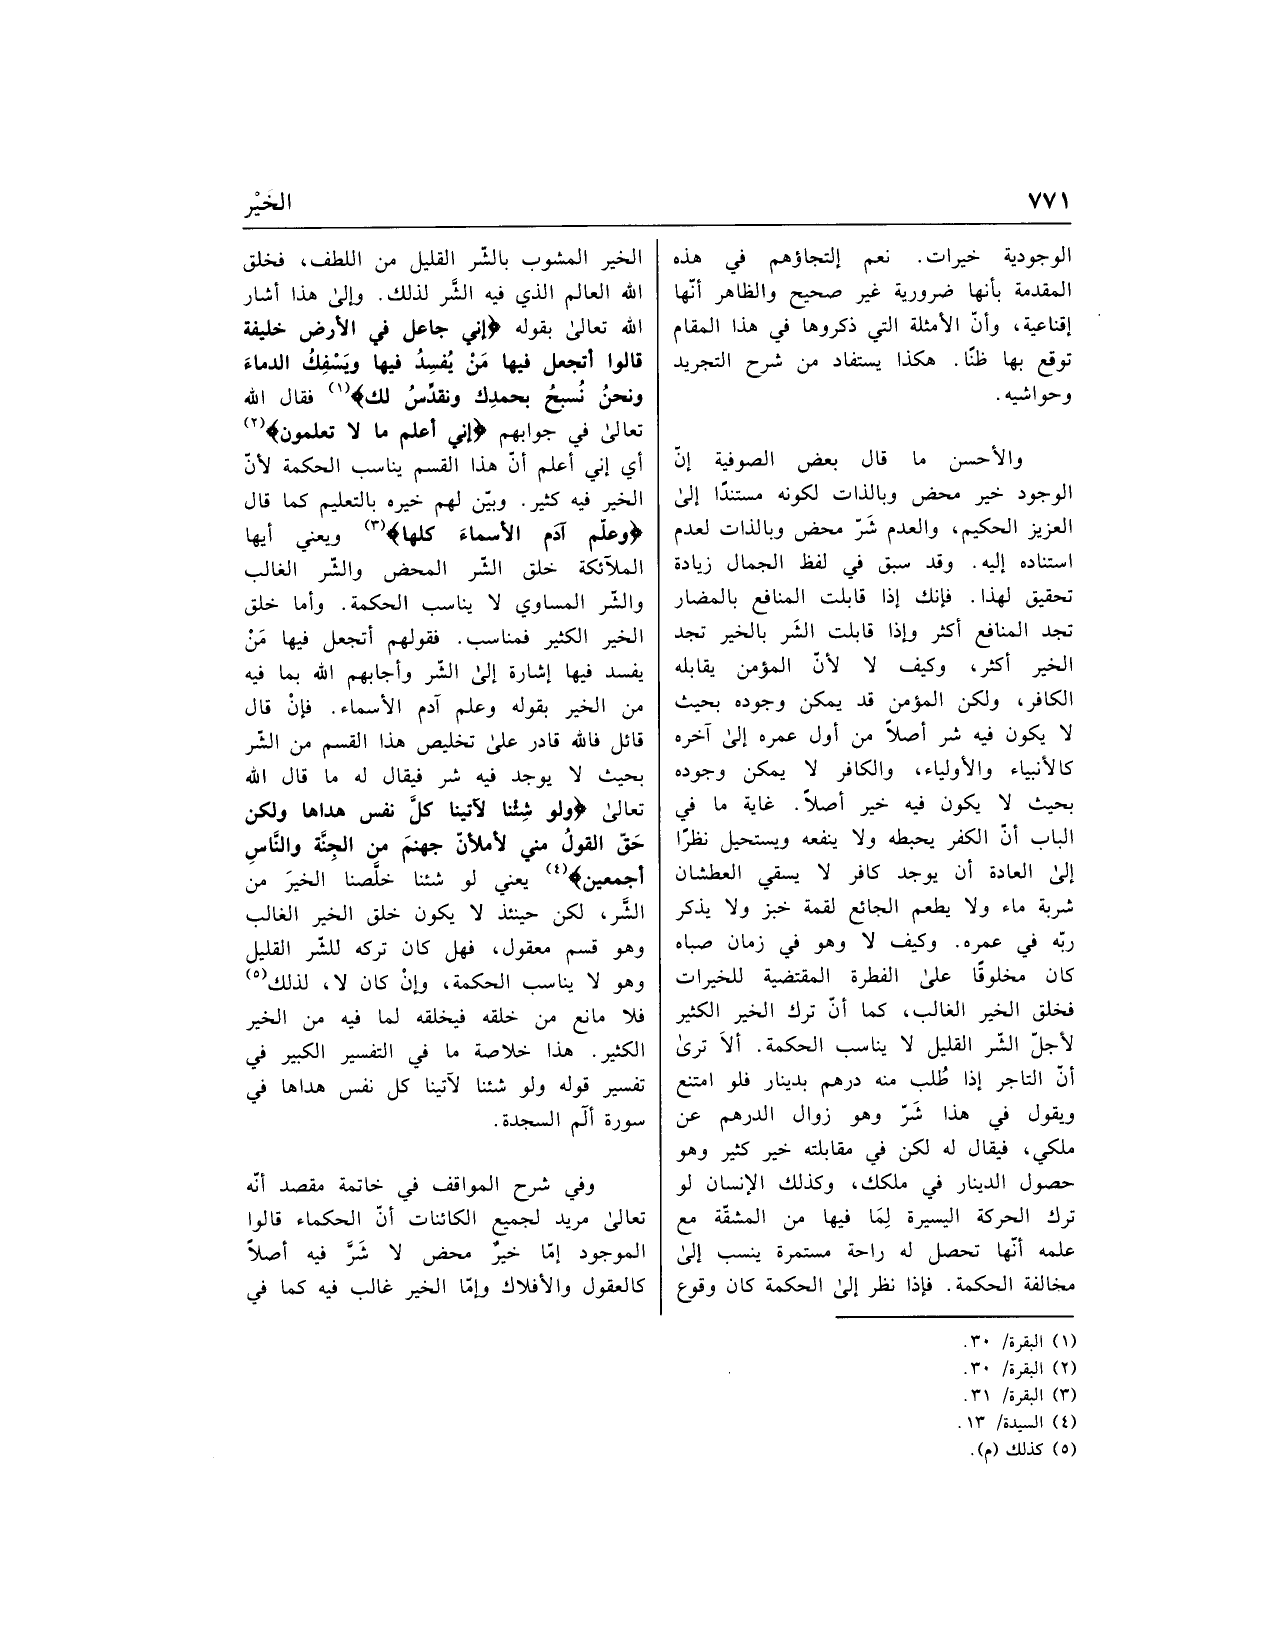 ٧٧١
الخَيْر
الوجودية خيرات. نعم إلتجاؤهم في هذه
المقدمة بأنها ضرورية غير صحيح والظاهر أنّها
إقناعية، وأنّ الأمثلة التي ذكروها في هذا المقام
توقع بها ظنًّا. هكذا يستفاد من شرح التجريد
وحواشيه.
والأحسن ما قال بعض الصوفية إنّ
الوجود خير محض وبالذات لكونه مستندًا إلىٰ
العزيز الحكيم، والعدم شَرّ محض وبالذات لعدم
استناده إليه. وقد سبق في لفظ الجمال زيادة
تحقيق لهذا. فإنك إذا قابلت المنافع بالمضار
تجد المنافع أكثر وإذا قابلت الشَر بالخير تجد
الخير أكثر، وكيف لا لأنّ المؤمن يقابله
الكافر، ولكن المؤمن قد يمكن وجوده بحيث
لا يكون فيه شر أصلاً من أول عمره إلىٰ آخره
كالأنبياء والأولياء، والكافر لا يمكن وجوده
بحيث لا يكون فيه خير أصلاً. غاية ما في
الباب أنّ الكفر يحبطه ولا ينفعه ويستحيل نظرًا
إلىٰ العادة أن يوجد كافر لا يسقي العطشان
شربة ماء ولا يطعم الجائع لقمة خبز ولا يذكر
ربّه في عمره. وكيف لا وهو في زمان صباه
كان مخلوقًا علىٰ الفطرة المقتضية للخيرات
فخلق الخير الغالب، كما أنّ ترك الخير الكثير
لأجلّ الشّر القليل لا يناسب الحكمة. ألاَ ترىٰ
أنّ التاجر إذا طُلب منه درهم بدينار فلو امتنع
ويقول في هذا شَرّ وهو زوال الدرهم عن
ملكي، فيقال له لكن في مقابلته خير كثير وهو
حصول الدينار في ملكك، وكذلك الإنسان لو
ترك الحركة اليسيرة لِمَا فيها من المشقّة مع
علمه أنّها تحصل له راحة مستمرة ينسب إلىٰ
مخالفة الحكمة. فإذا نظر إلىٰ الحكمة كان وقوع
الخير المشوب بالشّر القليل من اللطف، فخلق
الله العالم الذي فيه الشَّر لذلك. وإلىٰ هذا أشار
الله تعالىٰ بقوله ﴿إني جاعل في الأرض خليفة
قالوا أتجعل فيها مَنْ يُفسِدُ فيها ويَسْفِكُ الدماءَ
ونحنُ نُسبحُ بحمدِك ونقدِّسُ لك﴾(١) فقال الله
تعالىٰ في جوابهم ﴿إني أعلم ما لا تعلمون﴾(٢)
أي إني أعلم أنّ هذا القسم يناسب الحكمة لأنّ
الخير فيه كثير. وبيّن لهم خيره بالتعليم كما قال
﴿وعلّم آدَم الأسماءَ كلها﴾(٣) ويعني أيها
الملآئكة خلق الشّر المحض والشّر الغالب
والشّر المساوي لا يناسب الحكمة. وأما خلق
الخير الكثير فمناسب. فقولهم أتجعل فيها مَنْ
يفسد فيها إشارة إلىٰ الشّر وأجابهم الله بما فيه
من الخير بقوله وعلم آدم الأسماء. فإنْ قال
قائل فالله قادر علىٰ تخليص هذا القسم من الشّر
بحيث لا يوجد فيه شر فيقال له ما قال الله
تعالىٰ ﴿ولو شِئْنا لآتينا كلَّ نفس هداها ولكن
حَقّ القولُ مني لأملأنّ جهنمَ من الجِنَّة والنَّاسِ
أجمعين﴾(٤) يعني لو شئنا خلَّصنا الخيرَ من
الشَّر، لكن حينئذ لا يكون خلق الخير الغالب
وهو قسم معقول، فهل كان تركه للشّر القليل
وهو لا يناسب الحكمة، وإنْ كان لا، لذلك(٥)
فلا مانع من خلقه فيخلقه لما فيه من الخير
الكثير. هذا خلاصة ما في التفسير الكبير في
تفسير قوله ولو شئنا لآتينا كل نفس هداها في
سورة ألَم السجدة.
وفي شرح المواقف في خاتمة مقصد أنّه
تعالىٰ مريد لجميع الكائنات أنّ الحكماء قالوا
الموجود إمّا خيرٌ محض لا شَرَّ فيه أصلاً
كالعقول والأفلاك وإمّا الخير غالب فيه كما في
(١) البقرة/ ٣٠.
(٢) البقرة/ ٣٠.
(٣) البقرة/ ٣١.
(٤) السيدة/ ١٣.
(٥) كذلك (م).